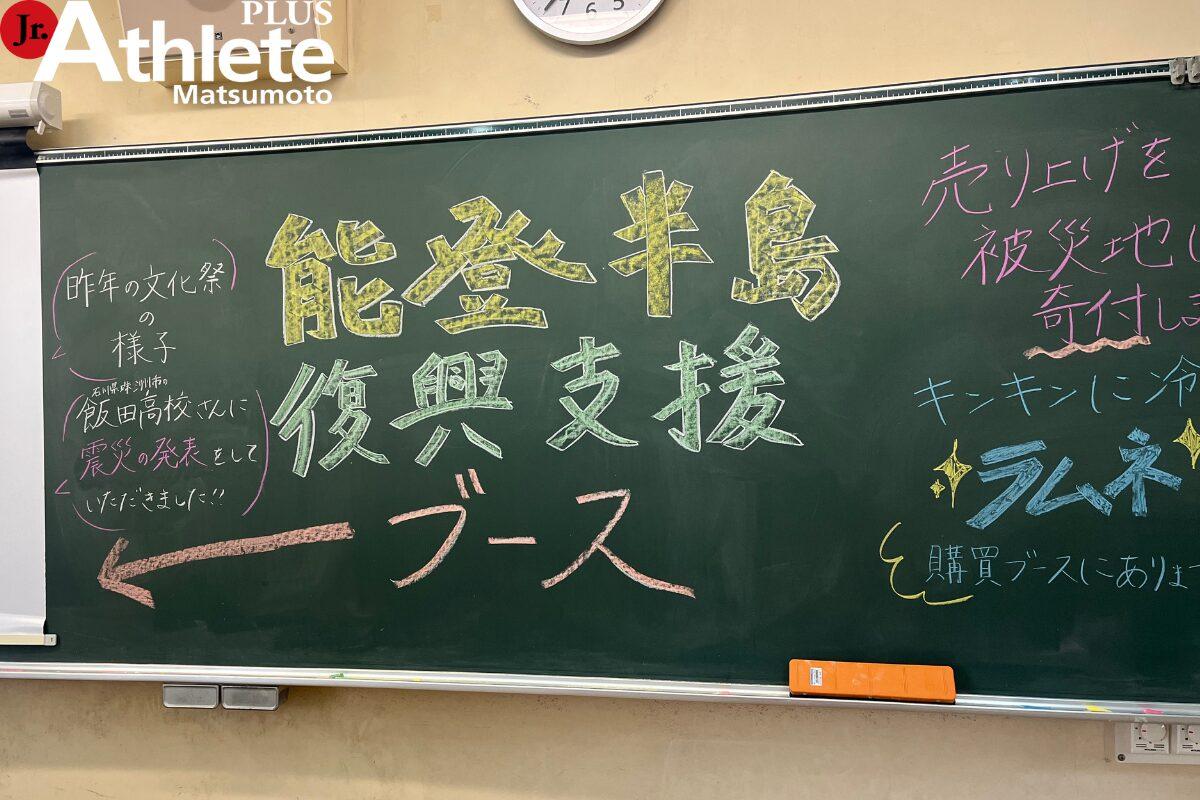 Jr. Athlete PLUS
Matsumoto
7 6 5
能登半島
復興支援
ブース
昨年の文化祭
の
様子
石川県珠洲市の
飯田高校さんに
震災の発表をして
いただきました!!
売り上げを
被災地
寄付しま
キンキンに冷
ラムネ
購買ブースにあります